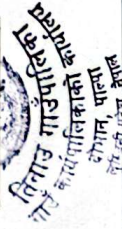 तिनाउ गाउँपालिका
गाउँ कार्यपालिकाको कार्यालय
दोभान, पाल्पा
नेपाल